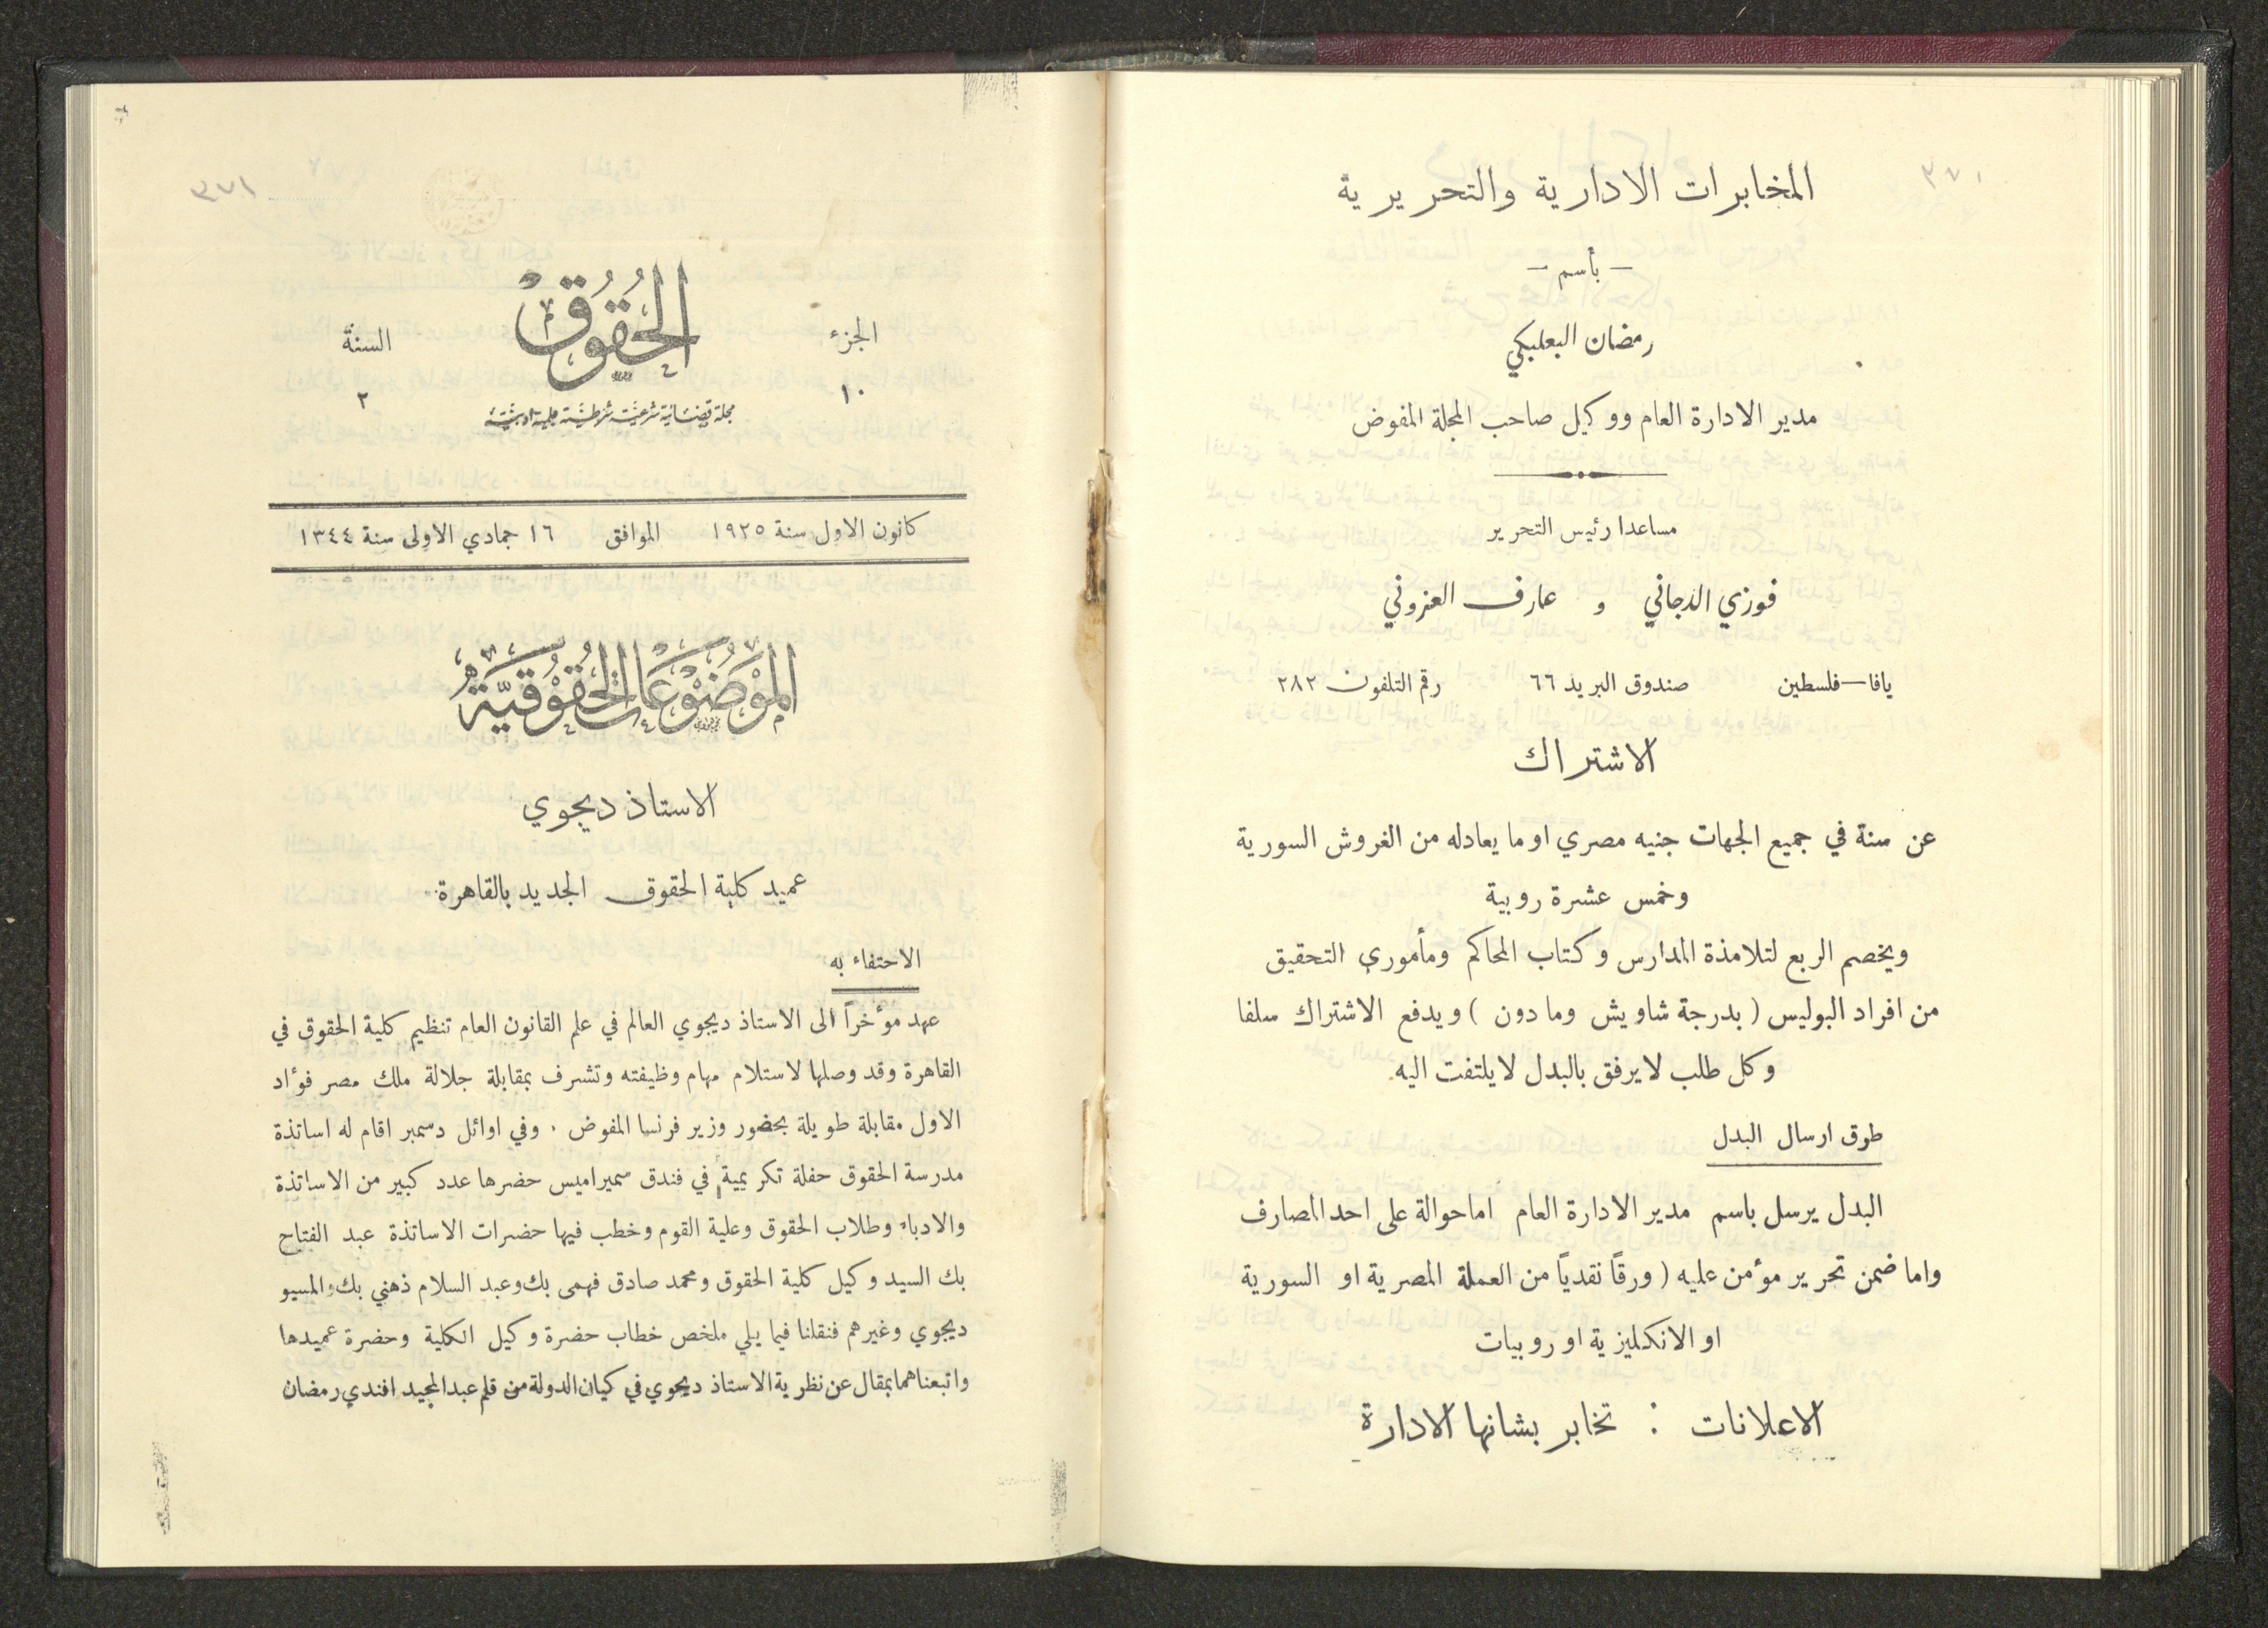 المخابرات الادارية والتحريرية
— بأسم —
رمضان البعلبكي
مدير الادارة العام ووكيل صاحب المجلة المفوض
مساعدا رئيس التحرير
فوزي الدجاني و عارف العزوني
يافا—فلسطين صندوق البريد ٦٦ رقم التلفون ٢٨٢
الاشتراك
عن سنة في جميع الجهات جنيه مصري او ما يعادله من الغروش السورية
وخمس عشرة روبية
ويخصم الربع لتلامذة المدارس وكتاب المحاكم ومأموري التحقيق
من افراد البوليس ( بدرجة شاويش وما دون ) ويدفع الاشتراك سلفا
وكل طلب لا يرفق بالبدل لا يلتفت اليه.
طرق ارسال البدل
البدل يرسل باسم مدير الادارة العام اما حوالة على احد المصارف
واما ضمن تحرير مؤمن عليه ( ورقاً نقدياً من العملة المصرية او السورية
او الانكليزية او روبيات
الاعلانات : تخابر بشانها الادارة
٣٧١
الحُقُوق
الجزء
١٠
السنة
٢
مجلة قضائية شرعية شرطية علمية ادبية
كانون الاول سنة ١٩٢٥ الموافق ١٦ جمادي الاولى سنة ١٣٤٤
الموضوعات الحقوقية
الاستاذ ديجوي
عميد كلية الحقوق الجديد بالقاهرة
الاحتفاء به
عهد مؤخراً الى الاستاذ ديجوي العالم في علم القانون العام تنظيم كلية الحقوق في
القاهرة وقد وصلها لاستلام مهام وظيفته وتشرف بمقابلة جلالة ملك مصر فؤاد
الاول مقابلة طويلة بحضور وزير فرنسا المفوض . وفي اوائل دسمبر اقام له اساتذة
مدرسة الحقوق حفلة تكريمية في فندق سميراميس حضرها عدد كبير من الاساتذة
والادباء وطلاب الحقوق وعلية القوم وخطب فيها حضرات الاساتذة عبد الفتاح
بك السيد وكيل كلية الحقوق ومحمد صادق فهمى بك وعبد السلام ذهني بك والمسيو
ديجوي وغيرهم فنقلنا فيما يلي ملخص خطاب حضرة وكيل الكلية وحضرة عميدها
واتبعناهما بمقال عن نظرية الاستاذ ديجوي في كيان الدولة من قلم عبد المجيد افندي رمضان